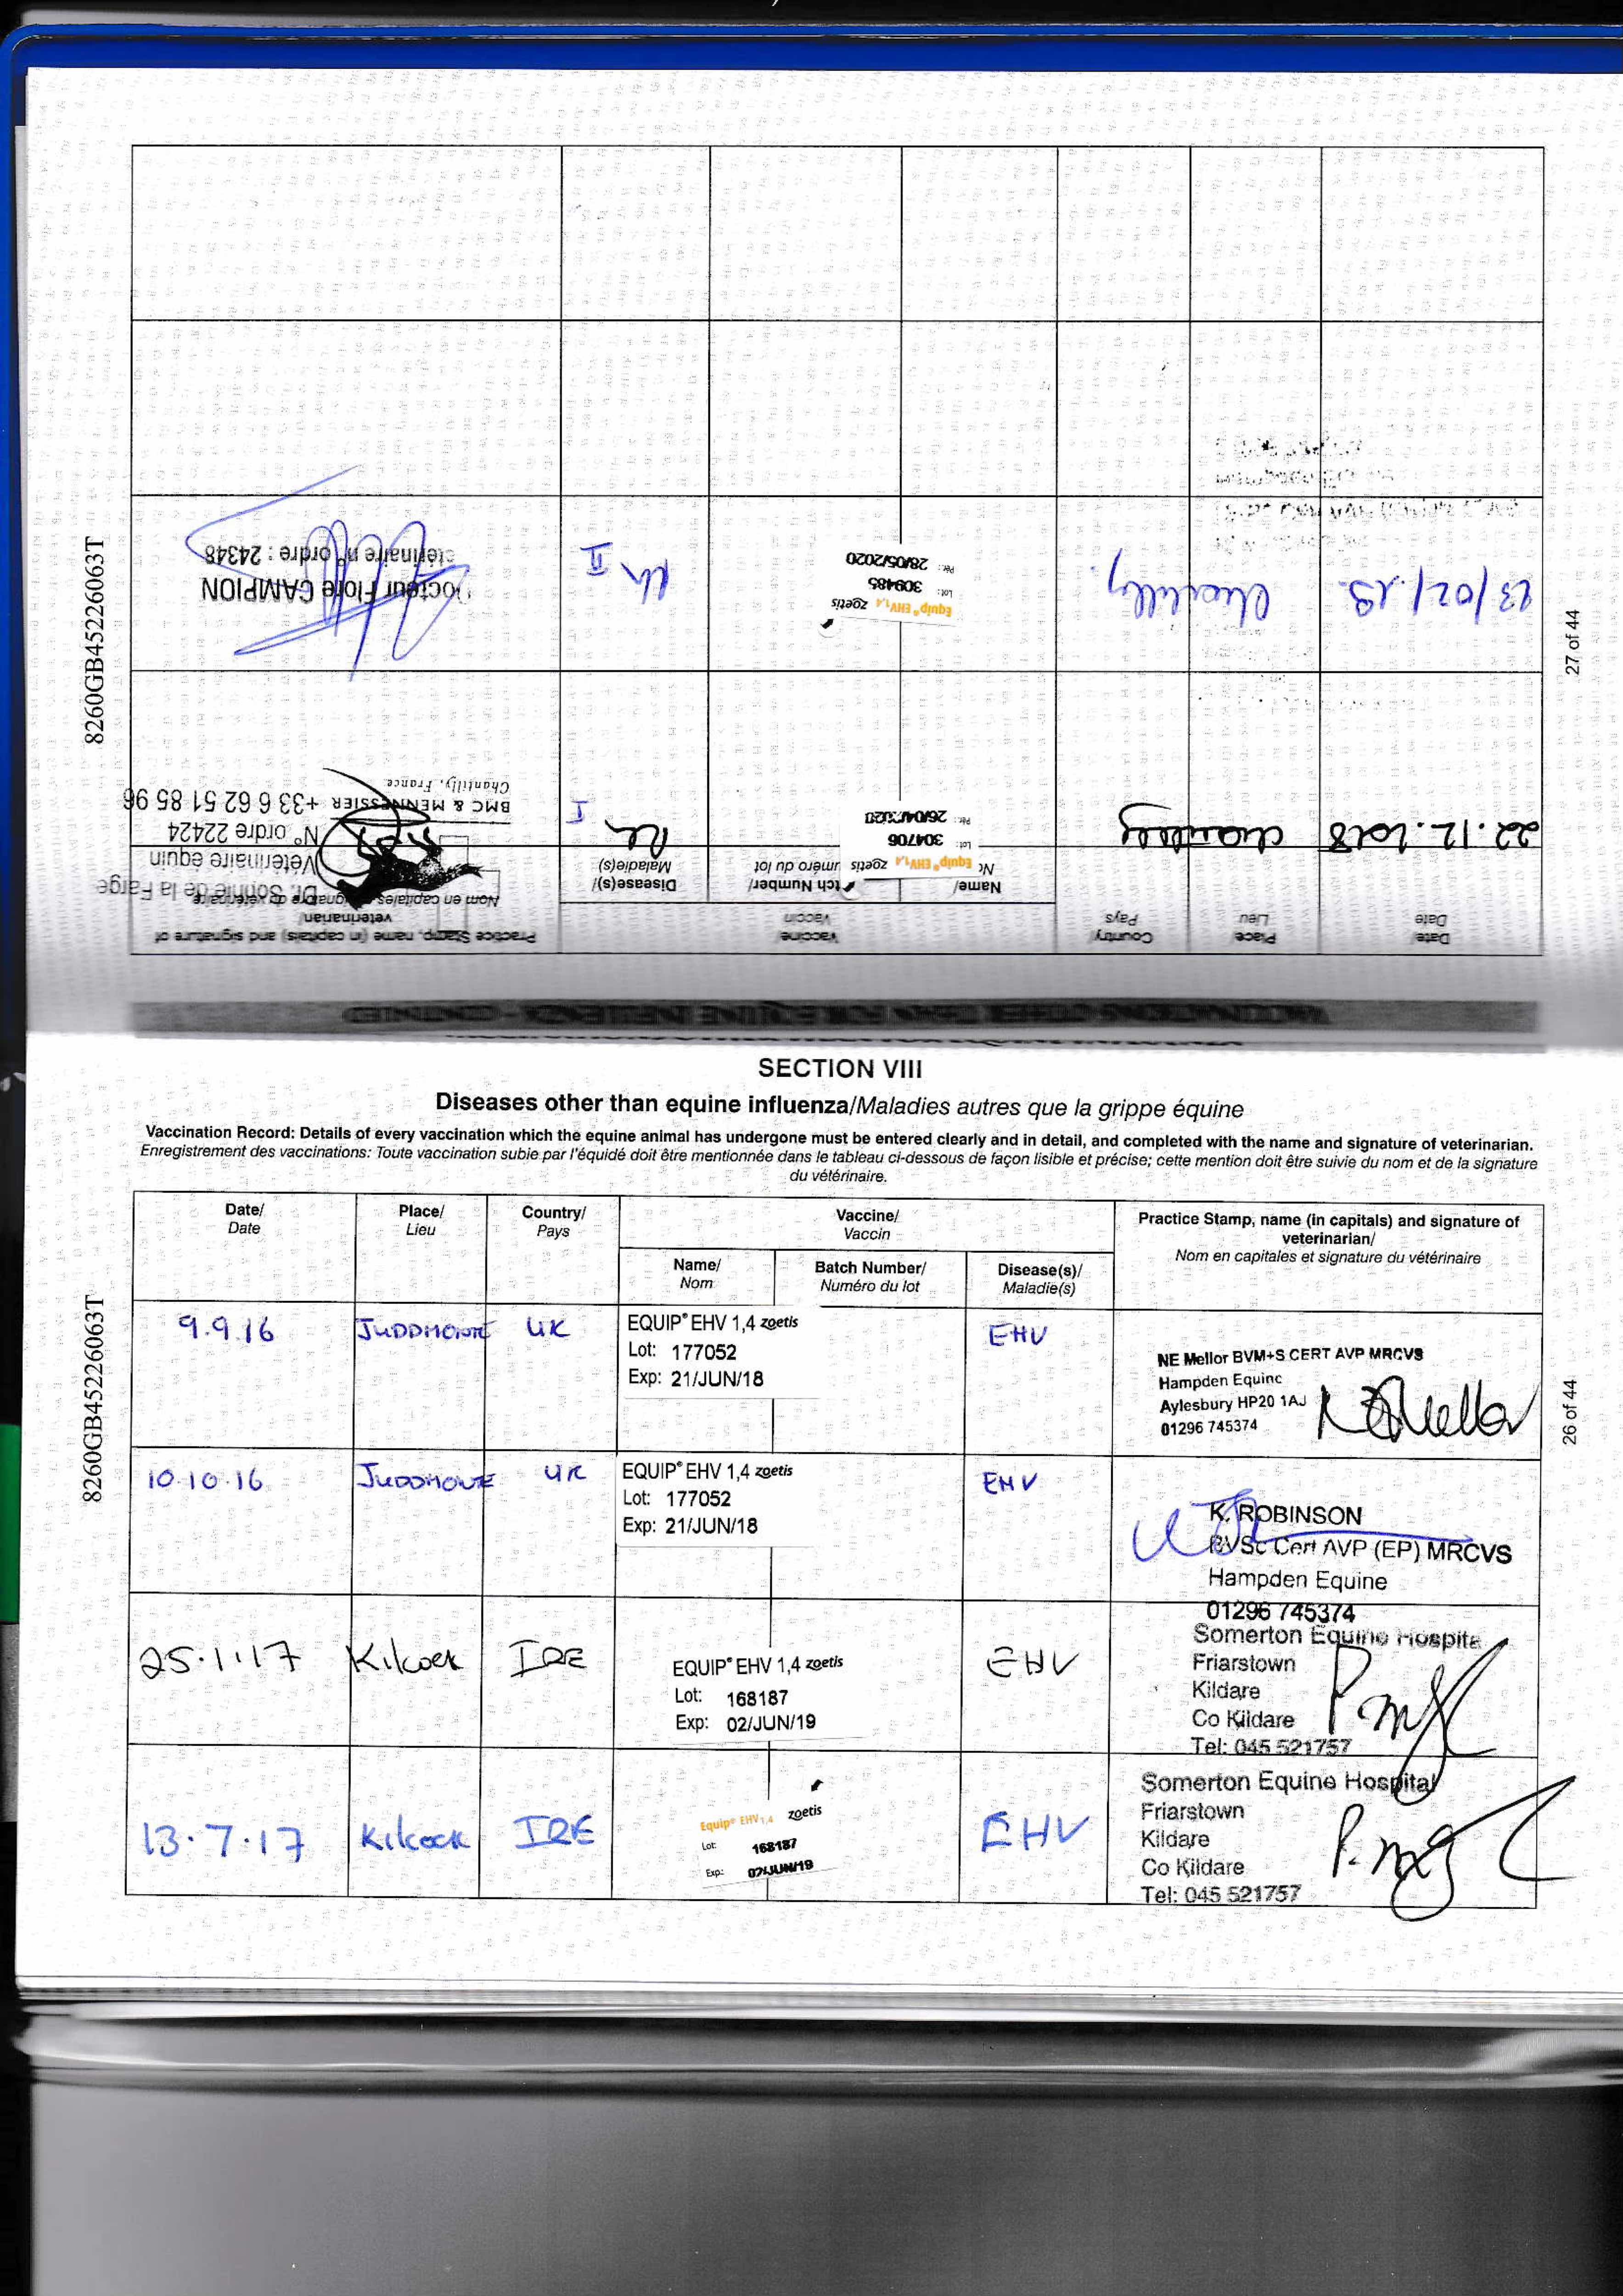 SECTION VIII
Diseases other than equine influenza/Maladies autres que la grippe équine
Vaccination Record: Details of every vaccination which the equine animal has undergone must be entered clearly and in detail, and completed with the name and signature of veterinarian.
Enregistrement des vaccinations: Toute vaccination subie par l'équidé doit être mentionnée dans le tableau ci-dessous de façon lisible et précise; cette mention doit être suivie du nom et de la signature
du vétérinaire.
Date/ Place/ Country/ Vaccine/ Practice Stamp, name (in capitals) and signature of
Date Lieu Pays Vaccin veterinarian/
Nom en capitales et signature du vétérinaire
Name/ Batch Number/ Disease(s)/
Nom Numéro du lot Maladie(s)
9.9.16 JUDDMONTE UK EQUIP® EHV 1,4 zoetis EHV
Lot: 177052
Exp: 21/JUN/18
NE Mellor BVM+S CERT AVP MRCVS
Hampden Equine
Aylesbury HP20 1AJ
01296 745374
10.10.16 JUDDMONTE UK EQUIP® EHV 1,4 zoetis EHV
Lot: 177052
Exp: 21/JUN/18
K. ROBINSON
BVSc Cert AVP (EP) MRCVS
Hampden Equine
01296 745374
25.1.17 Kilcock IRE EQUIP® EHV 1,4 zoetis EHV
Lot: 168187
Exp: 02/JUN/19
Somerton Equine Hospital
Friarstown
Kildare
Co Kildare
Tel: 045 521757
13.7.17 Kilcock IRE Equip® EHV 1,4 zoetis EHV
Lot: 168187
Exp.: 02/JUN/19
Somerton Equine Hospital
Friarstown
Kildare
Co Kildare
Tel: 045 521757
8260GB45226063T
26 of 44
VACCINATIONS OTHER THAN FOR EQUINE INFLUENZA - CONTINUED
Date/ Place/ Country/ Vaccine/ Practice Stamp, name (in capitals) and signature of
Date Lieu Pays Vaccin veterinarian/
Nom en capitales signature du vétérinaire
Name/ tch Number/ Disease(s)/
Nc uméro du lot Maladie(s)
22.12.2018 Chantilly Equip® EHV1,4 zoetis Rh I
Lot: 304706
Pér.: 26/04/2020
Dr. Sophie de la Farge
Vétérinaire équin
N° ordre 22424
BMC & MENNESSIER +33 6 62 51 85 96
Chantilly, France
23/02/19. Chantilly. Equip® EHV1,4 zoetis Rh II
Lot: 309485
Pér.: 28/05/2020
Docteur Flore CAMPION
térinaire n° ordre : 24348
8260GB45226063T
27 of 44